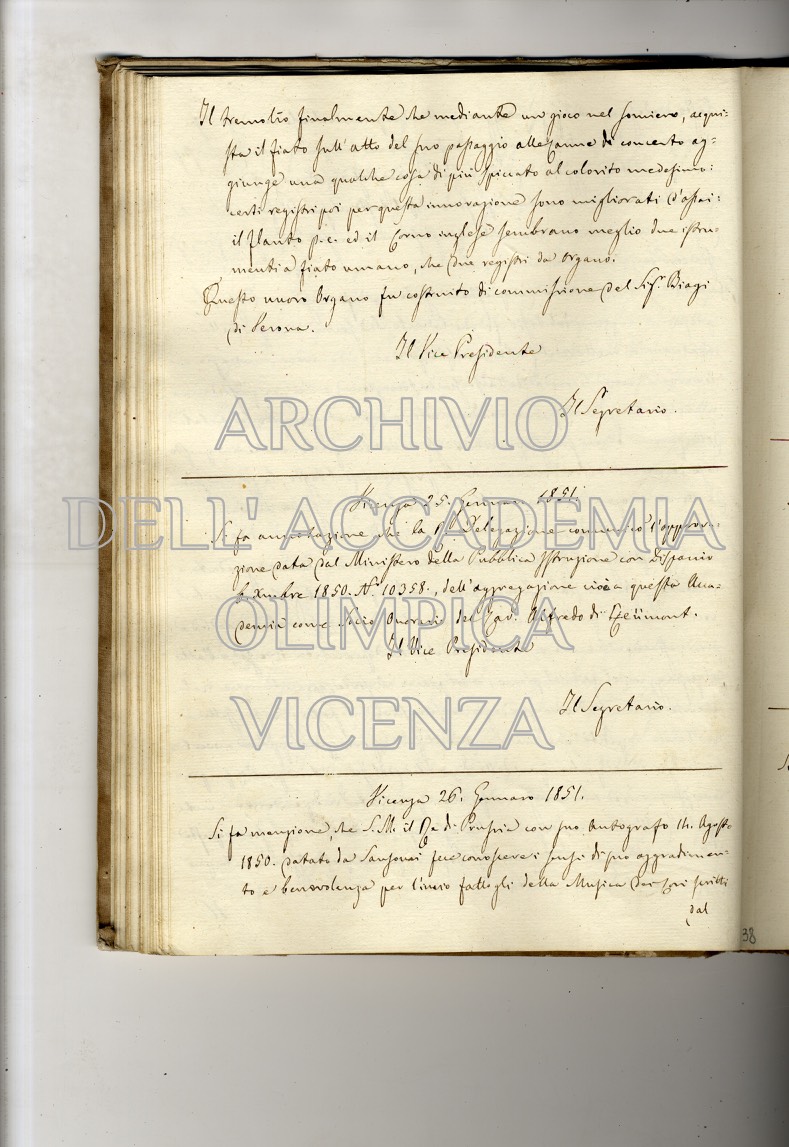 Il tremolio finalmente che mediante un gioco nel somiero, acqui-
sta il fiato sull'atto del suo passaggio alle Canne di concerto ag-
giunge una qualche cosa di più spiccato al colorito medesimo:
certi registri poi per questa innovazione sono migliorati d'assai:
il Flauto p.e. ed il Corno inglese sembrano meglio due istru-
menti a fiato umano, che due registri da Organo.
Questo nuovo Organo fu costruito di commissione del Sig.r Biagi
di Verona.
Il Vice Presidente
Il Segretario.
ARCHIVIO
Vicenza 25. Gennaro 1851.
DELL' ACCADEMIA
Si fa annotazione che la Delegazione comunicò l'approva-
zione data dal Ministero della Pubblica Istruzione con Dispaccio
6 Xmbre 1850. N.° 10358., dell'aggregazione cioè a questa Acca-
demia come Socio Onorario del Cav. Alfredo di
OLIMPICA
Il Vice Presidente
Il Segretario.
VICENZA
Vicenza 26. Gennaro 1851.
Si fa menzione, che S. M. il Re di Prussia con suo Autografo 14. Agosto
1850. datato da Sansouci fece conoscere i sensi di suo aggradimen-
to e benevolenza per l'invio fattogli della Musica dei Cori scritti
dal
38